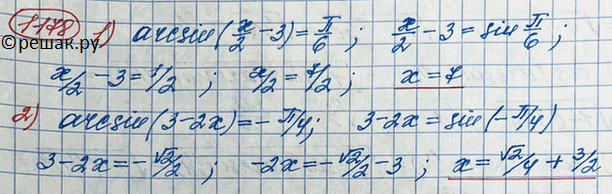 1178 1) arcsin(x/2 -3)=π/6 ; x/2 -3=sin π/6 ;
©решак.ру
x/2 -3=1/2 ; x/2=7/2 ; x=7
2) arcsin(3-2x)=-π/4; 3-2x=sin(-π/4)
3-2x=-√2/2 ; -2x=-√2/2 -3 ; x=√2/4 + 3/2